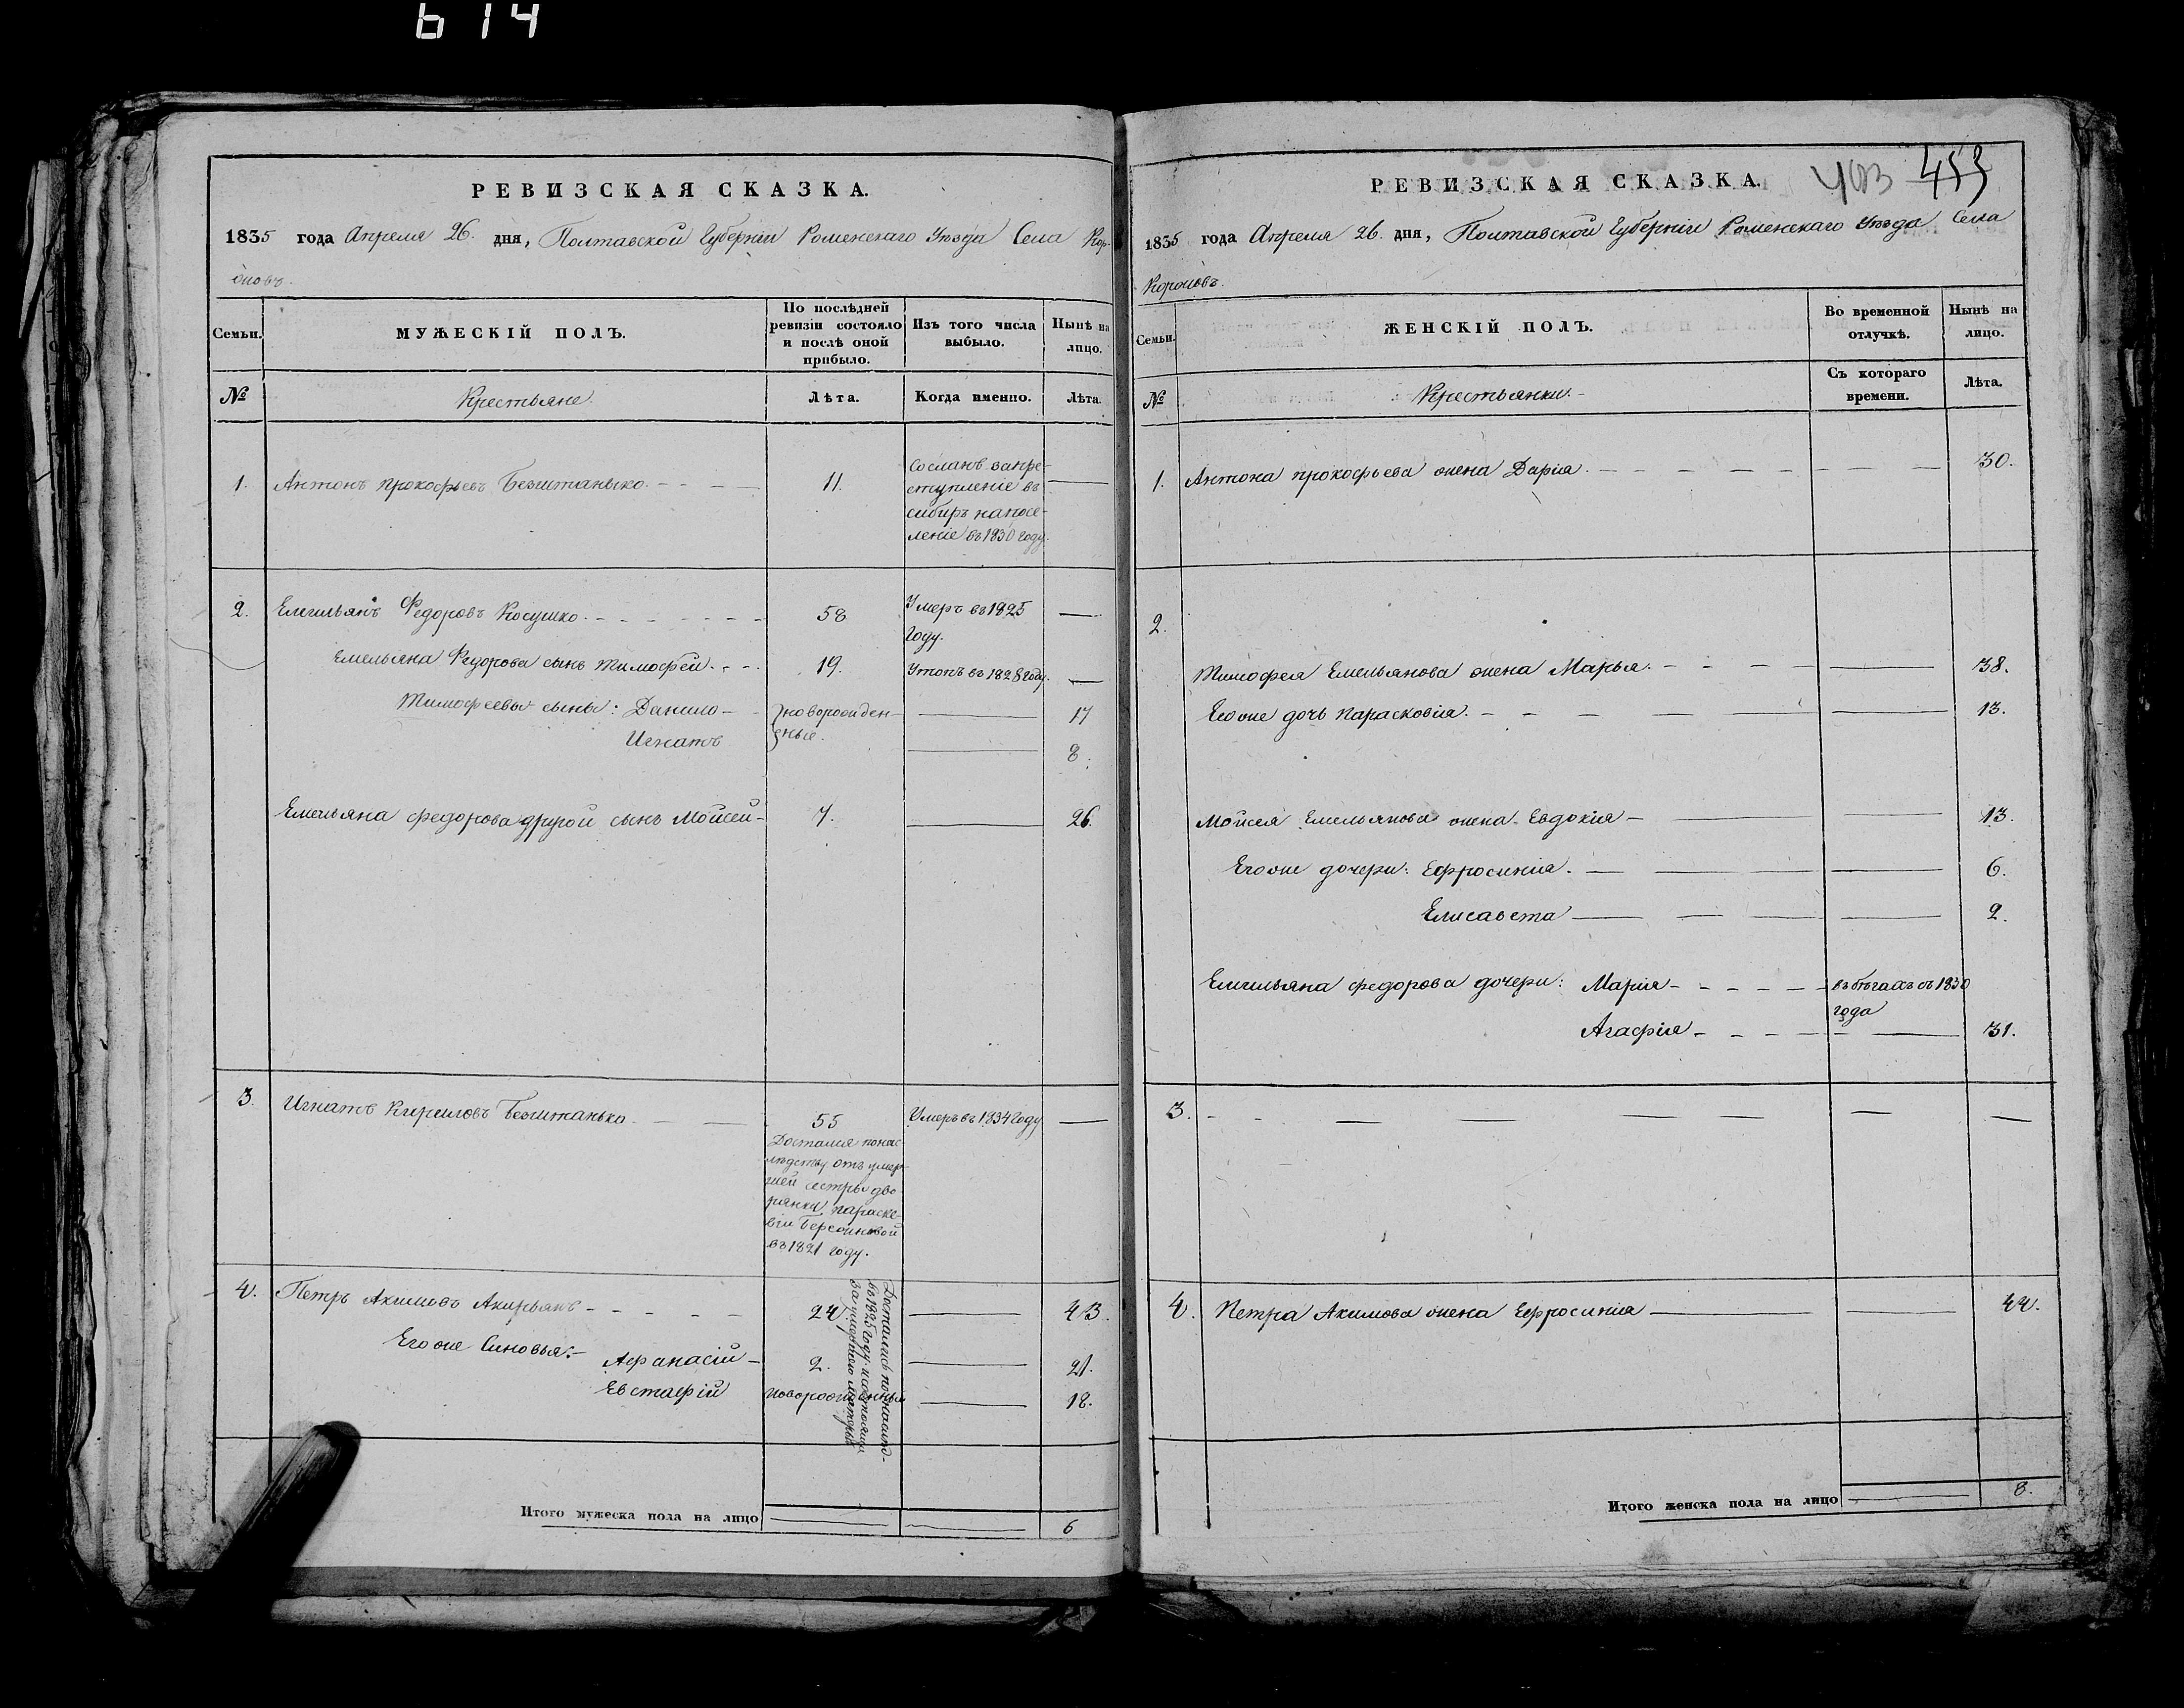 614
РЕВИЗСКАЯ СКАЗКА.
1835 года Апреля 26. дня, Полтавской Губернiи Роменскаго Уѣзда Села Кор-
оновъ.
Семьи. МУЖЕСКІЙ ПОЛЪ. По послѣдней ревизіи состояло и послѣ оной прибыло. Изъ того числа выбыло. Нынѣ на лицо.
№ Крестьяне. Лѣта. Когда именно. Лѣта.
1. Антонъ Прокофьевъ 11. Сосланъ запре-
ступленіе въ
сибиръ напосе-
леніе въ 1830 году.
2. Емельянъ Федоровъ Косушко. 58 Умеръ въ 1825
году.
Емельяна Федорова сынъ Тимофей. 19. Утопъ въ 1828 году.
Тимофеевы сыны: Данило новорожден- 17
Игнатъ ные. 8.
Емельяна федорова другой сынъ Мойсей 7. 26.
3. Игнатъ Кириловъ 55 Умеръ въ 1834 году
Достался понас-
лѣдству отъ умер-
шей сестры дво
рянки параске-
віи
въ 1821 году.
4. Петръ Акимовъ 24. 43.
Его же Синовья: Афанасій 2. 21.
Евстафій новорожденный 18.
Достались понаслѣд-
въ 1825 году
Итого мужеска пола на лицо 6
РЕВИЗСКАЯ СКАЗКА.
403 453
1835 года Апреля 26. дня, Полтавской Губерніи Роменскаго Уѣзда Села
Короновъ.
Семьи. ЖЕНСКІЙ ПОЛЪ. Во временной отлучкѣ. Нынѣ на лицо.
№ Крестьянки. Съ котораго времени. Лѣта.
1. Антона прокофьева жена Дарія. 30.
2.
Тимофея Емельянова жена Марья. 38.
Его же дочь Парасковія. 13.
Мойсея Емельянова жена Евдокія 13.
Его же дочери: Ефросинія. 6.
Елисавета 2.
Емельяна федорова дочери: Марія въ бѣгахъ съ 1830
года
Агафія 31.
3.
4. Петра Акимова жена Ефросинія 44.
Итого женска пола на лицо 8.